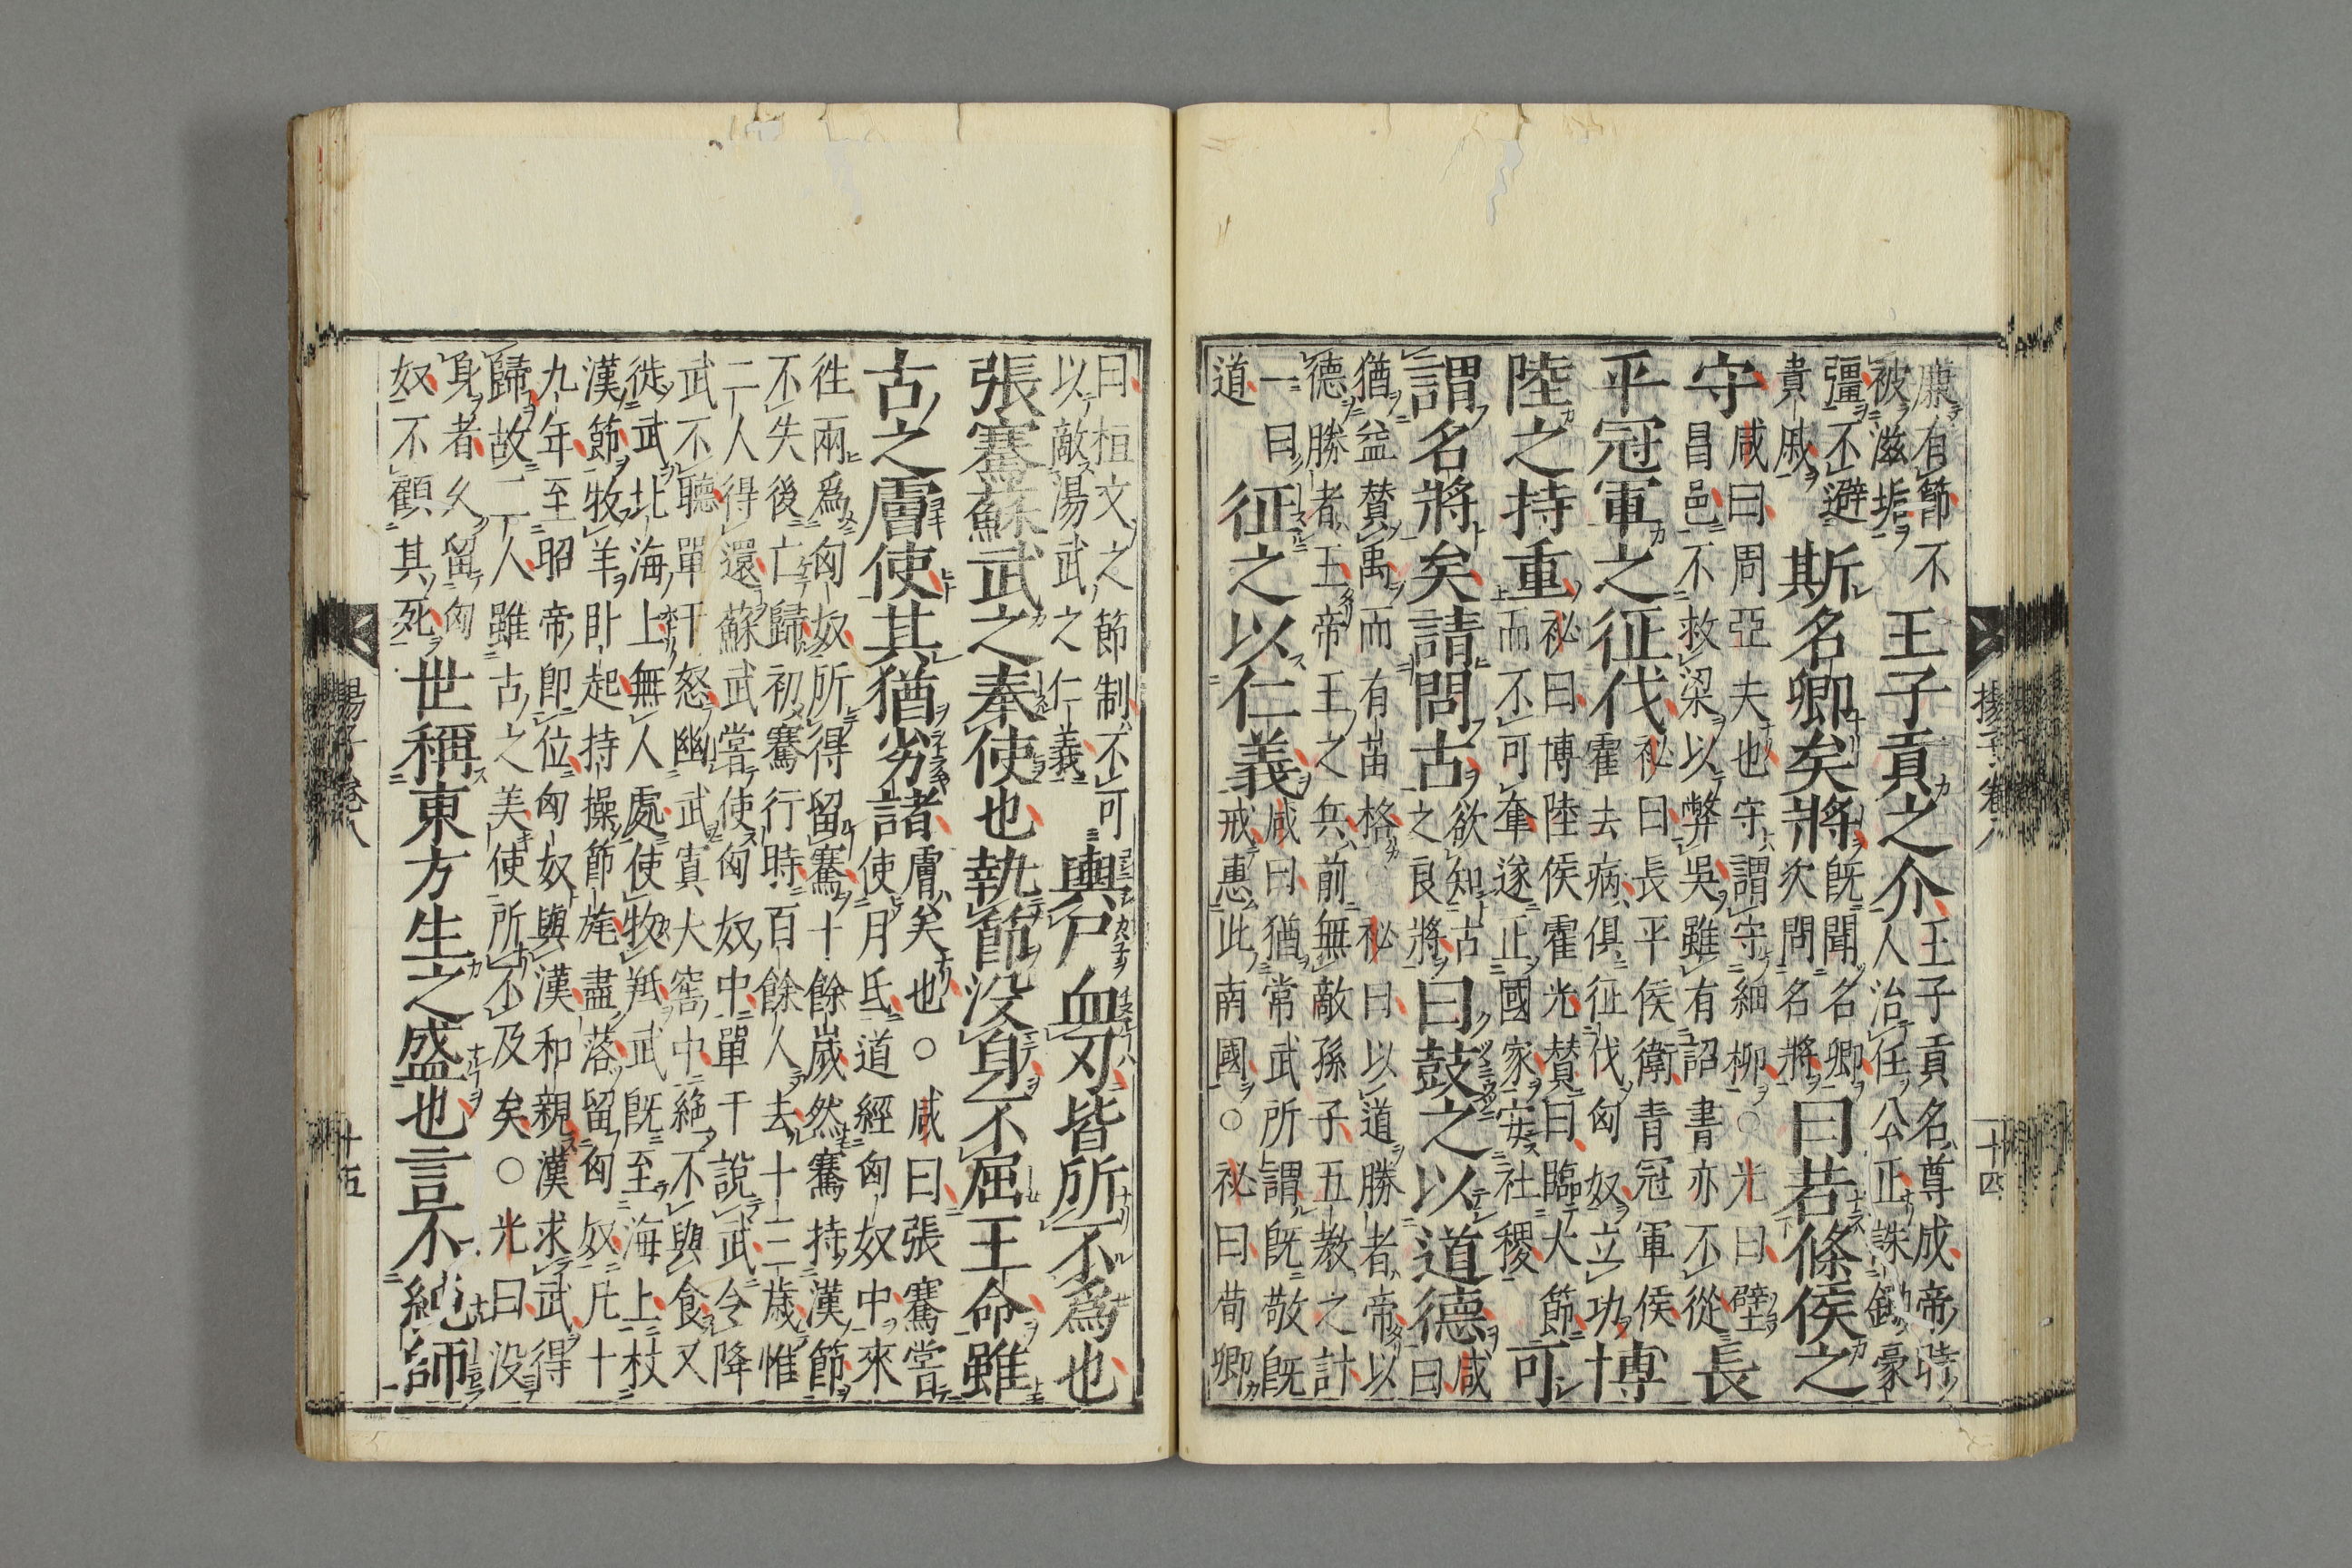 廉有節不
被滋垢
王子貢之介
王子貢名尊成帝時
人治任公正誅鋤豪
彊不避
貴戚
斯名卿矣將
既聞名卿
次問名將
曰若條侯之
守
咸曰周亞夫也守謂守細柳○光曰壁
昌邑不救梁以弊吳雖有詔書亦不從
長
平冠軍之征伐
祕曰長平侯衛青冠軍侯
霍去病俱征伐匈奴立功
博
陸之持重
祕曰博陸侯霍光贊曰臨大節
而不可奪遂匡國家安社稷
可
謂名將矣請問古
欲知古
之良將
曰鼓之以道德
咸
曰
猶益贊禹而有苗格 祕曰以道勝者帝以
德勝者王帝王之兵前無敵孫子五教之計
一曰
道
征之以仁義
咸曰猶常武所謂既敬既
戒惠此南國○祕曰荀卿
揚子卷八
十四
曰桓文之節制不可
以敵湯武之仁義
輿尸血刃皆所不爲也
張騫蘇武之奉使也執節沒身不屈王命雖
古之膚使其猶劣諸
膚美也○咸曰張騫嘗
使月氏道經匈奴中來
徃兩爲匈奴所得留騫十餘歲然騫持漢節
不失後亡歸初騫行時百餘人去十三歲惟
二人得還蘇武嘗使匈奴中單于說武令降
武不聽單于怒幽武寘大窖中絶不與食又
徙武北海上無人處使牧羝武既至海上杖
漢節牧羊卧起持操節旄盡落留匈奴凡十
九年至昭帝即位匈奴與漢和親漢求武得
歸故二人雖古之美使所不及矣○光曰没
身者久留匈
奴不顧其死
世稱東方生之盛也言不純師
揚子卷八
十五